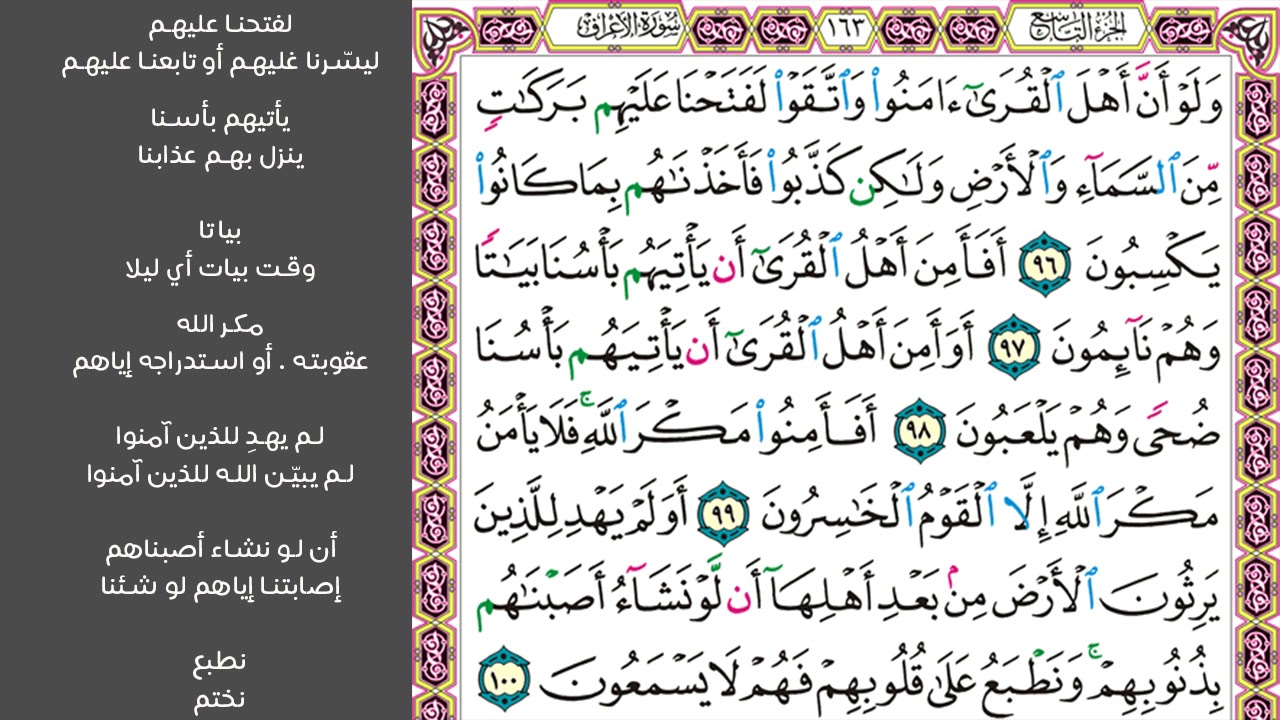 الجزء التاسع
١٦٣
سورة الأعراف
وَلَوْ أَنَّ أَهْلَ ٱلْقُرَىٰٓ ءَامَنُوا۟ وَٱتَّقَوْا۟ لَفَتَحْنَا عَلَيْهِم بَرَكَٰتٍ
مِّنَ ٱلسَّمَآءِ وَٱلْأَرْضِ وَلَٰكِن كَذَّبُوا۟ فَأَخَذْنَٰهُم بِمَا كَانُوا۟
يَكْسِبُونَ ٩٦ أَفَأَمِنَ أَهْلُ ٱلْقُرَىٰٓ أَن يَأْتِيَهُم بَأْسُنَا بَيَٰتًا
وَهُمْ نَآئِمُونَ ٩٧ أَوَأَمِنَ أَهْلُ ٱلْقُرَىٰٓ أَن يَأْتِيَهُم بَأْسُنَا
ضُحًى وَهُمْ يَلْعَبُونَ ٩٨ أَفَأَمِنُوا۟ مَكْرَ ٱللَّهِ ۚ فَلَا يَأْمَنُ
مَكْرَ ٱللَّهِ إِلَّا ٱلْقَوْمُ ٱلْخَٰسِرُونَ ٩٩ أَوَلَمْ يَهْدِ لِلَّذِينَ
يَرِثُونَ ٱلْأَرْضَ مِنۢ بَعْدِ أَهْلِهَآ أَن لَّوْ نَشَآءُ أَصَبْنَٰهُم
بِذُنُوبِهِمْ ۚ وَنَطْبَعُ عَلَىٰ قُلُوبِهِمْ فَهُمْ لَا يَسْمَعُونَ ١٠٠
لفتحنا عليهم
ليسّرنا غليهم أو تابعنا عليهم
يأتيهم بأسنا
ينزل بهم عذابنا
بياتا
وقت بيات أي ليلا
مكر الله
عقوبته . أو استدراجه إياهم
لم يهدِ للذين آمنوا
لم يبيّن الله للذين آمنوا
أن لو نشاء أصبناهم
إصابتنا إياهم لو شئنا
نطبع
نختم